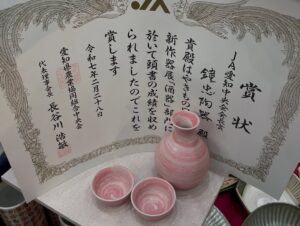 JA
賞状
JA愛知中央会会長賞
鐘忠陶器 殿
貴殿はやきものワールド
新作器展「酒器」部門に
於いて頭書の成績を収め
られましたのでこれを
賞します
令和七年二月二十八日
愛知県農業協同組合中央会
代表理事会長 長谷川浩敏